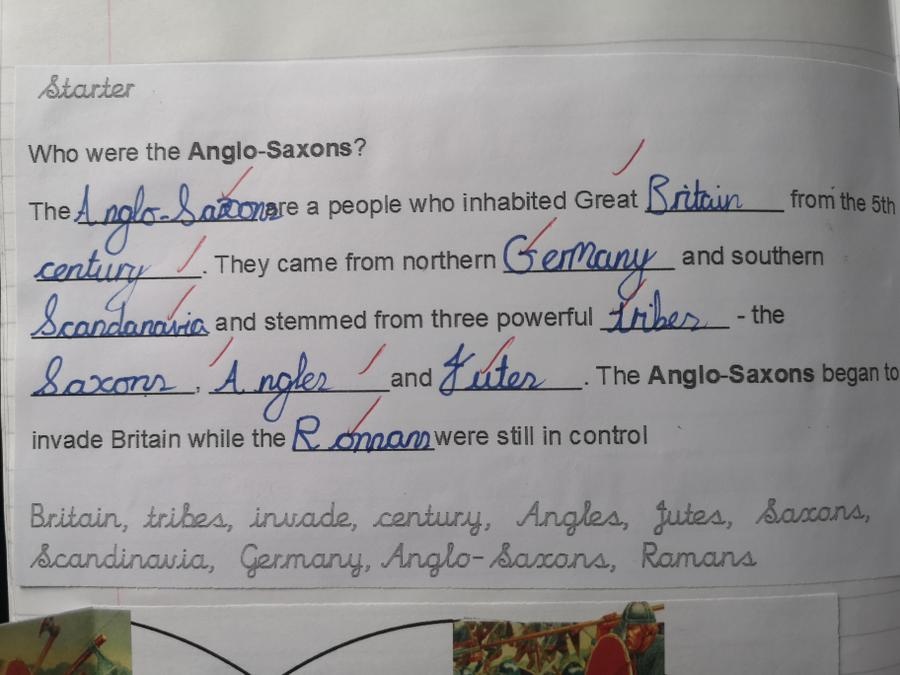 Starter
Who were the Anglo-Saxons?
The Anglo-Saxons are a people who inhabited Great Britain from the 5th
century. They came from northern Germany and southern
Scandanavia and stemmed from three powerful tribes - the
Saxons, Angles and Jutes. The Anglo-Saxons began to
invade Britain while the Romans were still in control
Britain, tribes, invade, century, Angles, Jutes, Saxons,
Scandinavia, Germany, Anglo-Saxons, Romans